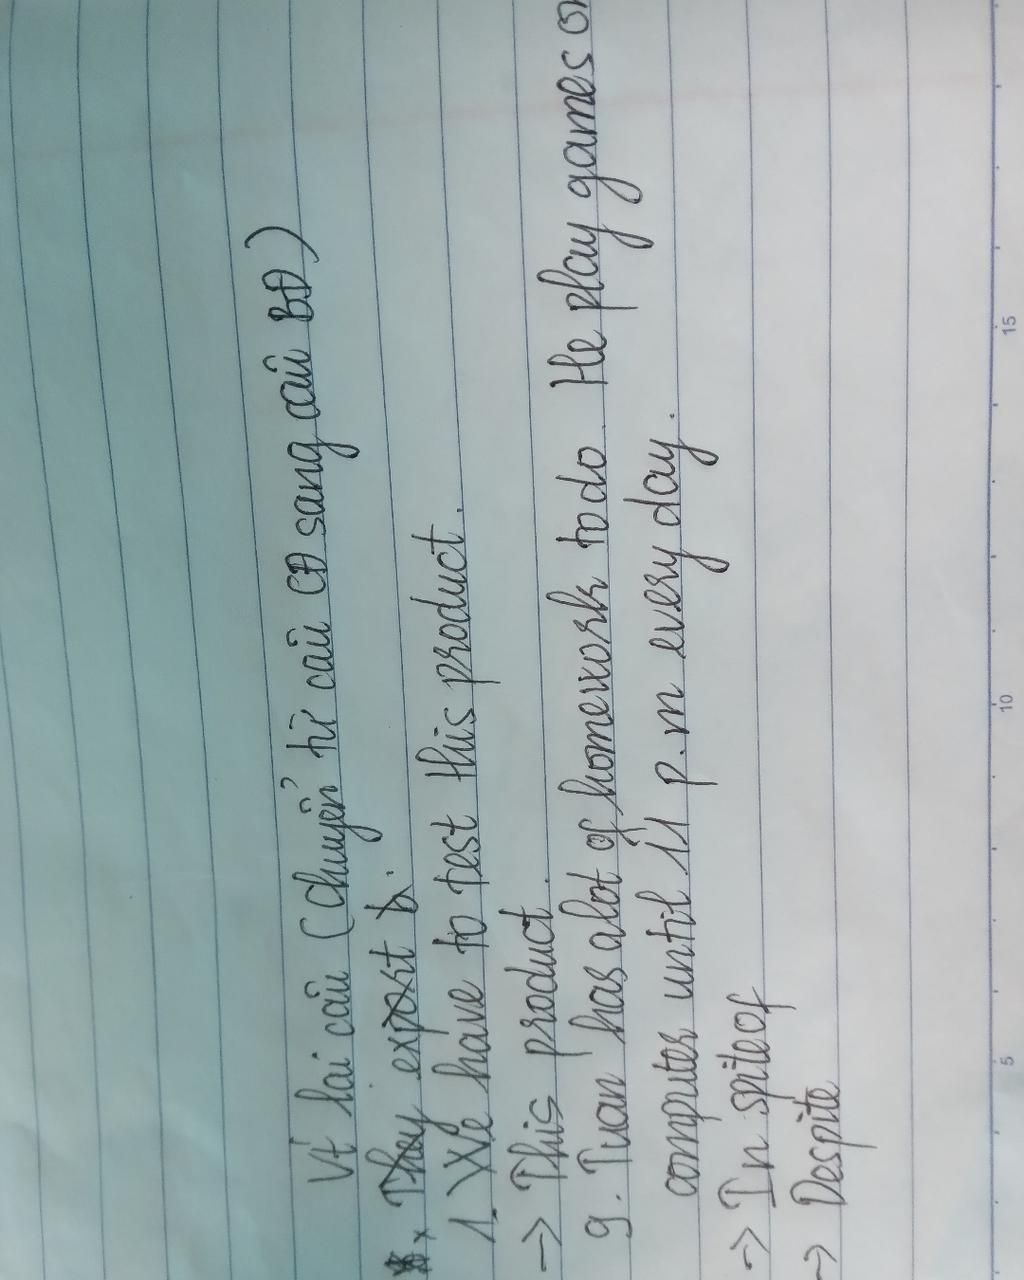 Vt lai câu (chuyển từ câu CĐ sang câu BĐ)
They export b.
1. We have to test this product.
→ This product.
9. Tuan has alot of homework to do. He play games on
computer until 11 p.m every day.
→ In spite of
→ Despite
5 10 15